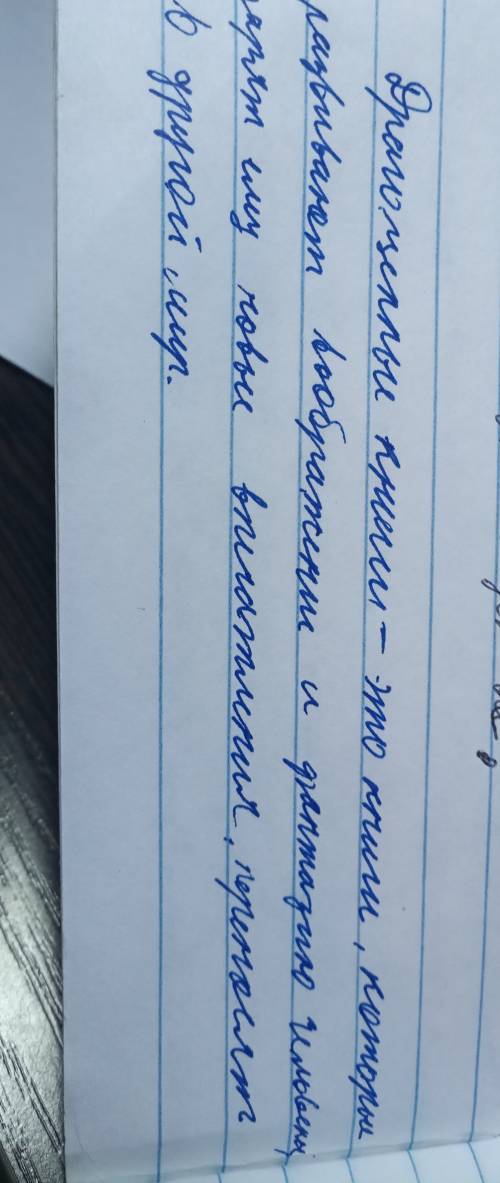 Драгоценные книги – это книги, которые
развивают воображение и фантазию человека,
дарят ему новые впечатления, переносят
в другой мир.